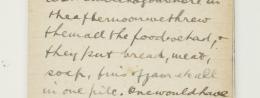 in
the afternoon we threw
them all the food we had, &
they put bread, meat,
soap, tins of jam &c all
in one pile. One would have